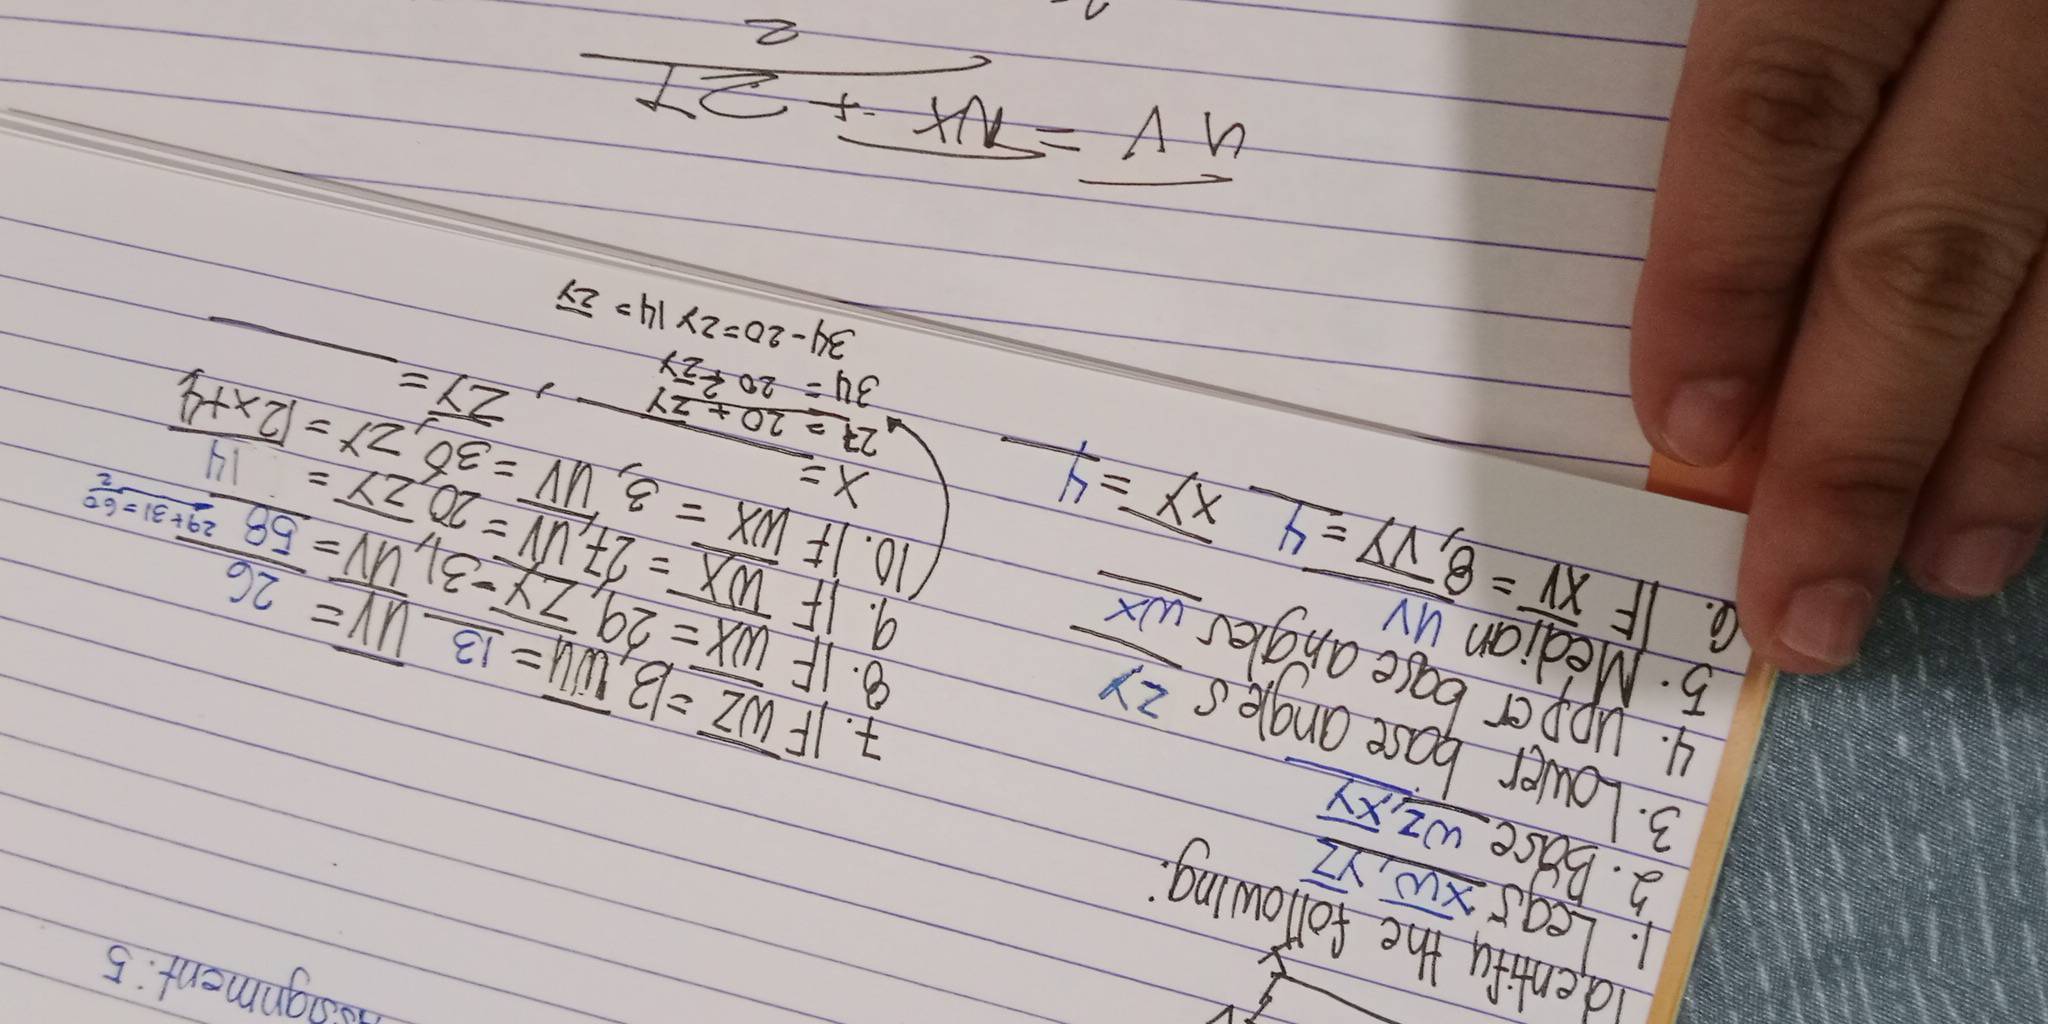 Assignment: 5
Identify the following:
1. Legs XW, YZ
2. Base WZ, XY
3. Lower base angles ZY
4. Upper base angles WX
5. Median UV
6. IF XV = 8, VY = 4 XY = 4
7. IF WZ = 13, WU = 13 UV = 26
8. IF WX = 29, ZY - 31, UV = 58 29+31=60
2
9. IF WX = 27, UV = 20 ZY = 14
10. IF WX = 3, UV = 36, ZY = 12x+4
X = , ZY =
27 = 20 + ZY
2
34 = 20 + ZY
34-20=ZY 14= ZY
UV = WX + ZY
2